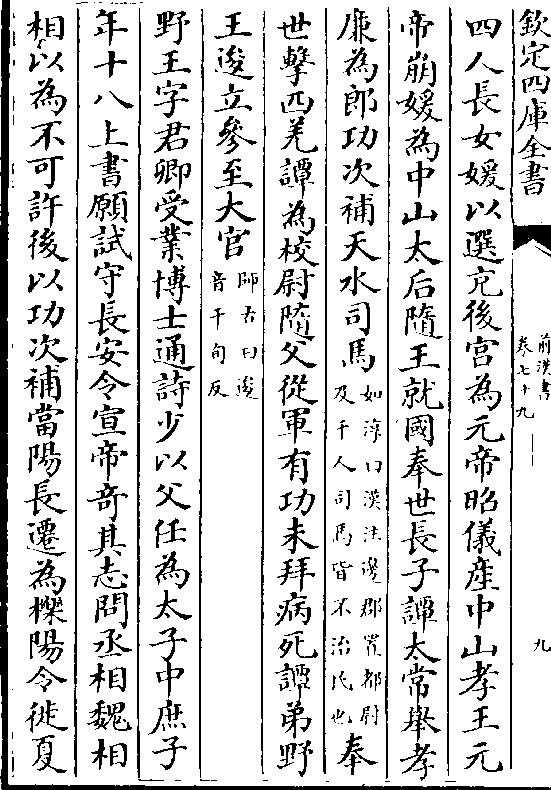 欽定四庫全書
前漢書
卷七十九
九
四人長女媛以選充後宫為元帝昭儀産中山孝王元
帝崩媛為中山太后隨王就國奉世長子譚太常舉孝
廉為郎功次補天水司馬如淳曰漢注邊郡置都尉及千人司馬皆不治民也奉
世擊西羌譚為校尉隨父從軍有功未拜病死譚弟野
王逡立參至大官師古曰逡音千旬反
野王字君卿受業博士通詩少以父任為太子中庶子
年十八上書願試守長安令宣帝奇其志問丞相魏相
相以為不可許後以功次補當陽長遷為櫟陽令徙夏